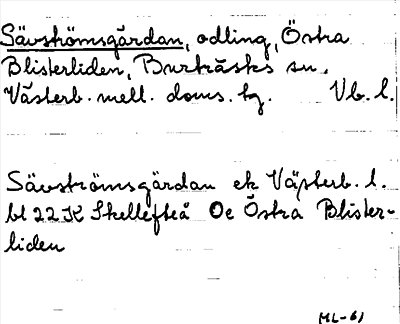 Sävströmsgärdan, odling, Östra
Blisterliden, Burträsks sn.
Västerb. mell. doms. tg. Vb. l.
Sävströmsgärdan ek Västerb. l.
bl 22 K Skellefteå Oe Östra Blister-
liden
ML-61